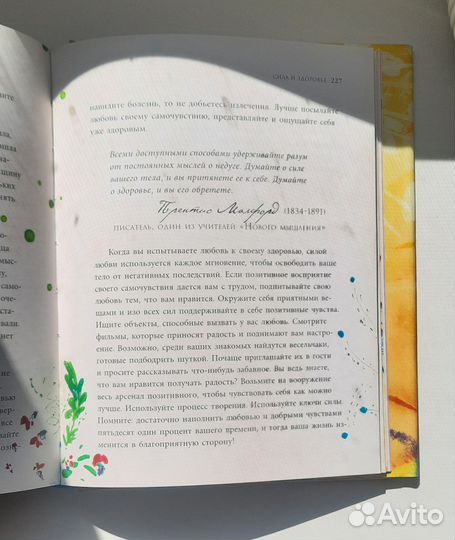 СИЛА И ЗДОРОВЬЕ 227
навидите болезнь, то не добьетесь излечения. Лучше посылайте
любовь своему самочувствию, представляйте и ощущайте себя
уже здоровым.
Всеми доступными способами удерживайте разум
от постоянных мыслей о недуге. Думайте о силе
вашего тела, и вы притянете ее к себе. Думайте
о здоровье, и вы его обретете.
Прентис Малфорд (1834–1891)
ПИСАТЕЛЬ, ОДИН ИЗ УЧИТЕЛЕЙ «НОВОГО МЫШЛЕНИЯ»
Когда вы испытываете любовь к своему здоровью, силой
любви используется каждое мгновение, чтобы освободить ваше
тело от негативных последствий. Если позитивное восприятие
своего самочувствия дается вам с трудом, подпитывайте свою
любовь тем, что вам нравится. Окружите себя приятными веща-
ми и изо всех сил поддерживайте в себе позитивные чувства.
Ищите объекты, способные вызвать у вас любовь. Смотрите
фильмы, которые приносят радость и поднимают вам настро-
ение. Возможно, среди ваших знакомых найдутся весельчаки,
готовые подбодрить шуткой. Почаще приглашайте их в гости
и просите рассказывать что-нибудь забавное. Вы ведь знаете,
что вам нравится получать радость? Возьмите на вооружение
весь арсенал позитивного, чтобы чувствовать себя как можно
лучше. Используйте процесс творения. Используйте ключи силы.
Помните: достаточно наполнить любовью и добрыми чувствами
пятьдесят один процент вашего времени, и тогда ваша жизнь из-
менится в благоприятную сторону!
Avito